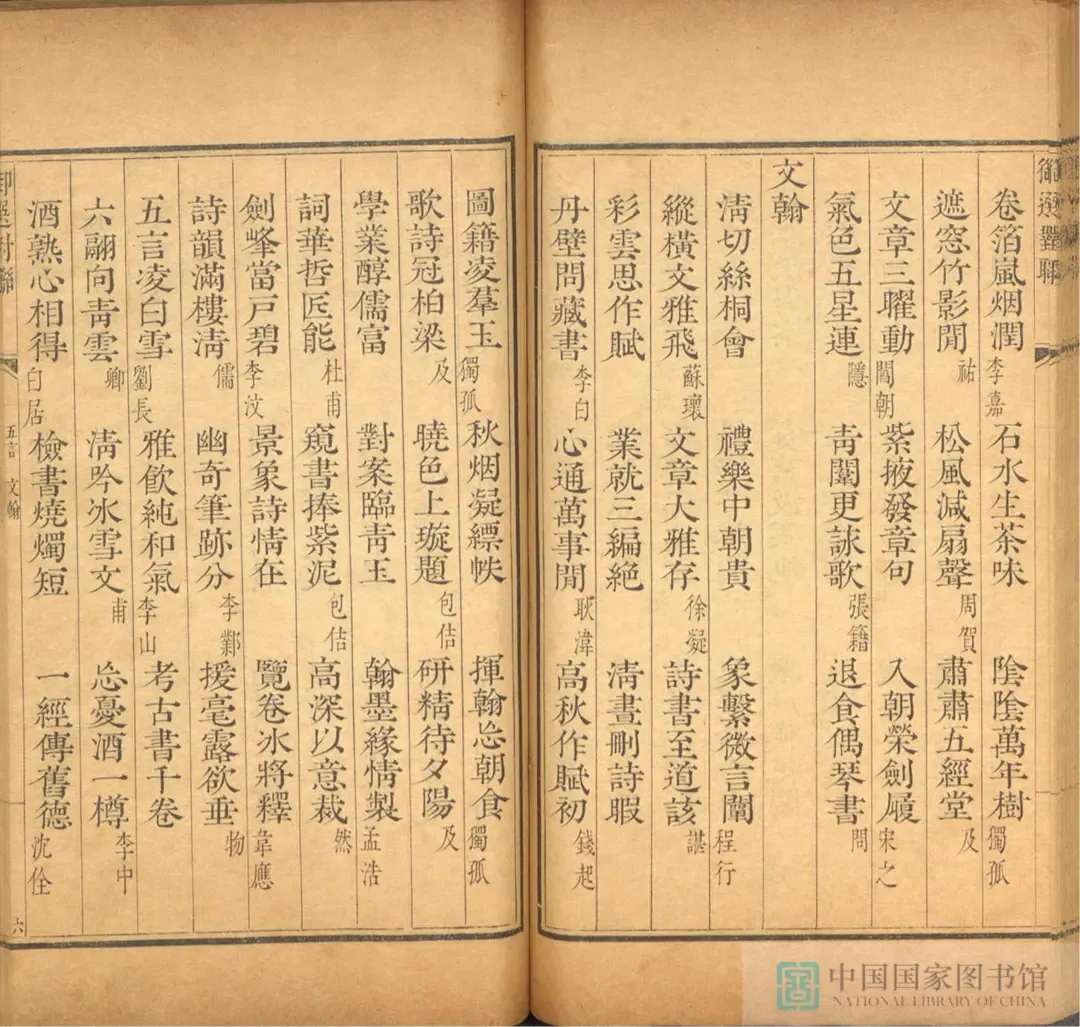 御選對聯
卷箔嵐烟潤 李嘉 石水生茶味 陰陰萬年樹 獨孤
遮窓竹影閒 祐 松風減扇聲 周賀 肅肅五經堂 及
文章三曜動 閻朝 紫掖發章句 入朝榮劍履 宋之
氣色五星連 隱 青闈更詠歌 張籍 退食偶琴書 問
文翰
淸切絲桐會 禮樂中朝貴 象繫微言闡 程行
縱橫文雅飛 蘇瓌 文章大雅存 徐凝 詩書至道該 諶
彩雲思作賦 業就三編絶 淸晝刪詩暇
丹壁問藏書 李白 心通萬事閒 耿湋 高秋作賦初 錢起
圖籍凌羣玉 獨孤 秋烟凝縹帙 揮翰忘朝食 獨孤
歌詩冠柏梁 及 曉色上璇題 包佶 研精待夕陽 及
學業醇儒富 對案臨靑玉 翰墨緣情製 孟浩
詞華哲匠能 杜甫 窺書捧紫泥 包佶 高深以意裁 然
劍峰當戸碧 李汶 景象詩情在 覽卷冰將釋 韋應
詩韻滿樓淸 儒 幽奇筆跡分 李鄴 援毫露欲垂 物
五言凌白雪 劉長 雅飮純和氣 李山 考古書千卷
六翮向靑雲 卿 淸吟冰雪文 甫 忘憂酒一樽 李中
酒熟心相得 白居 檢書燒燭短 一經傳舊德 沈佺
御選對聯
五言 文翰
六
中国国家图书馆
NATIONAL LIBRARY OF CHINA